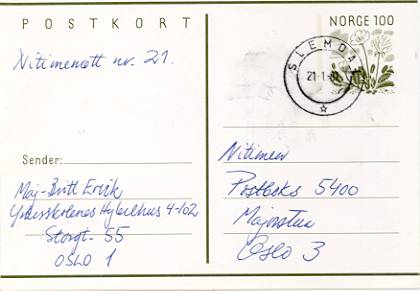 POSTKORT
NORGE 100
SLEMDAL
21-1-8
Nitimenøtt nr. 21.
Sender:
Maj-Britt Ervik
Yrkesskolenes Hybelhus 4-102
Storgt. 55
OSLO 1
Nitimen
Postboks 5400
Majorstua
Oslo 3